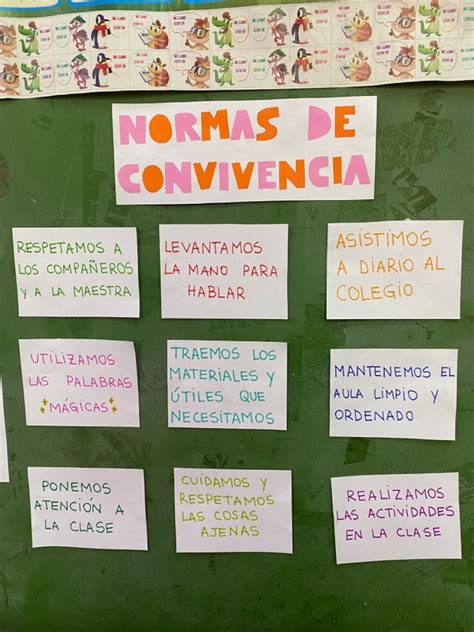 NORMAS DE
CONVIVENCIA
RESPETAMOS A
LOS COMPAÑEROS
Y A LA MAESTRA
LEVANTAMOS
LA MANO PARA
HABLAR
ASISTIMOS
A DIARIO AL
COLEGIO
UTILIZAMOS
LAS PALABRAS
MÁGICAS
TRAEMOS LOS
MATERIALES Y
ÚTILES QUE
NECESITAMOS
MANTENEMOS EL
AULA LIMPIO Y
ORDENADO
PONEMOS
ATENCIÓN A
LA CLASE
CUIDAMOS Y
RESPETAMOS
LAS COSAS
AJENAS
REALIZAMOS
LAS ACTIVIDADES
EN LA CLASE